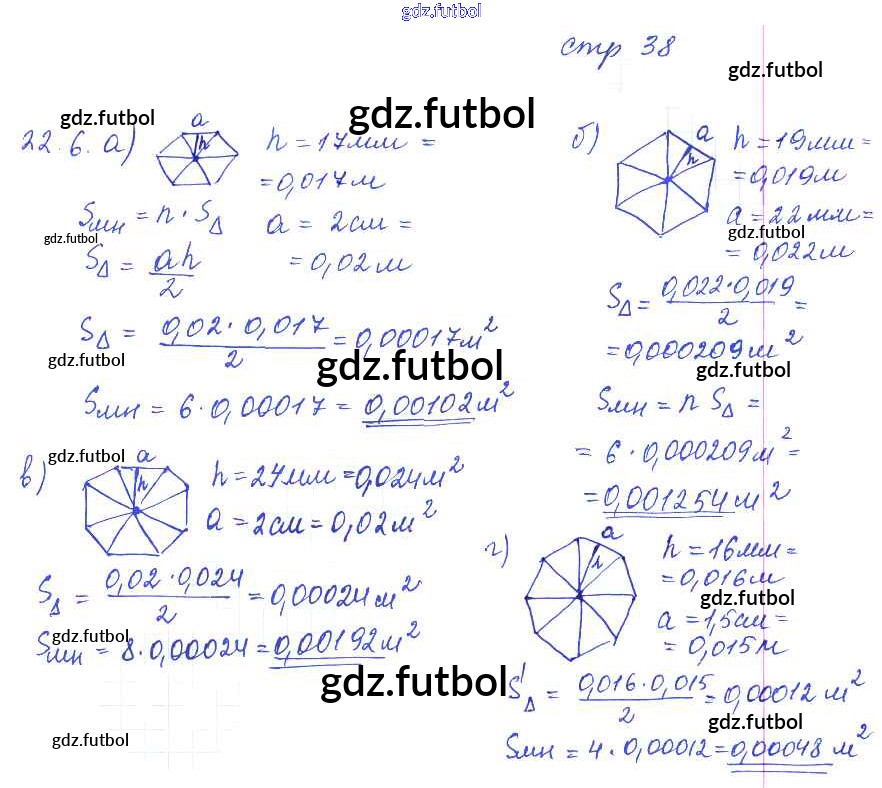 gdz.futbol
стр 38
gdz.futbol
gdz.futbol
gdz.futbol
22.6. а)
a
h
h = 17мм =
= 0,017м
Sмн = n · SΔ
a = 2см =
gdz.futbol
SΔ = ah/2
= 0,02м
SΔ = 0,02 · 0,017/2 = 0,00017м²
gdz.futbol
gdz.futbol
Sмн = 6 · 0,00017 = 0,00102м²
б)
a
h
h = 19мм =
= 0,019м
a = 22мм =
gdz.futbol
= 0,022м
SΔ = 0,022 · 0,019/2 =
= 0,000209м²
gdz.futbol
Sмн = n SΔ =
= 6 · 0,000209м² =
= 0,001254м²
gdz.futbol
в)
a
h
h = 24мм = 0,024м²
a = 2см = 0,02м²
SΔ = 0,02 · 0,024/2 = 0,00024м²
gdz.futbol
Sмн = 8 · 0,00024 = 0,00192м²
gdz.futbol
gdz.futbol
г)
a
h
h = 16мм =
= 0,016м
gdz.futbol
a = 1,5см =
= 0,015м
SΔ = 0,016 · 0,015/2 = 0,00012 м²
gdz.futbol
Sмн = 4 · 0,00012 = 0,00048 м²